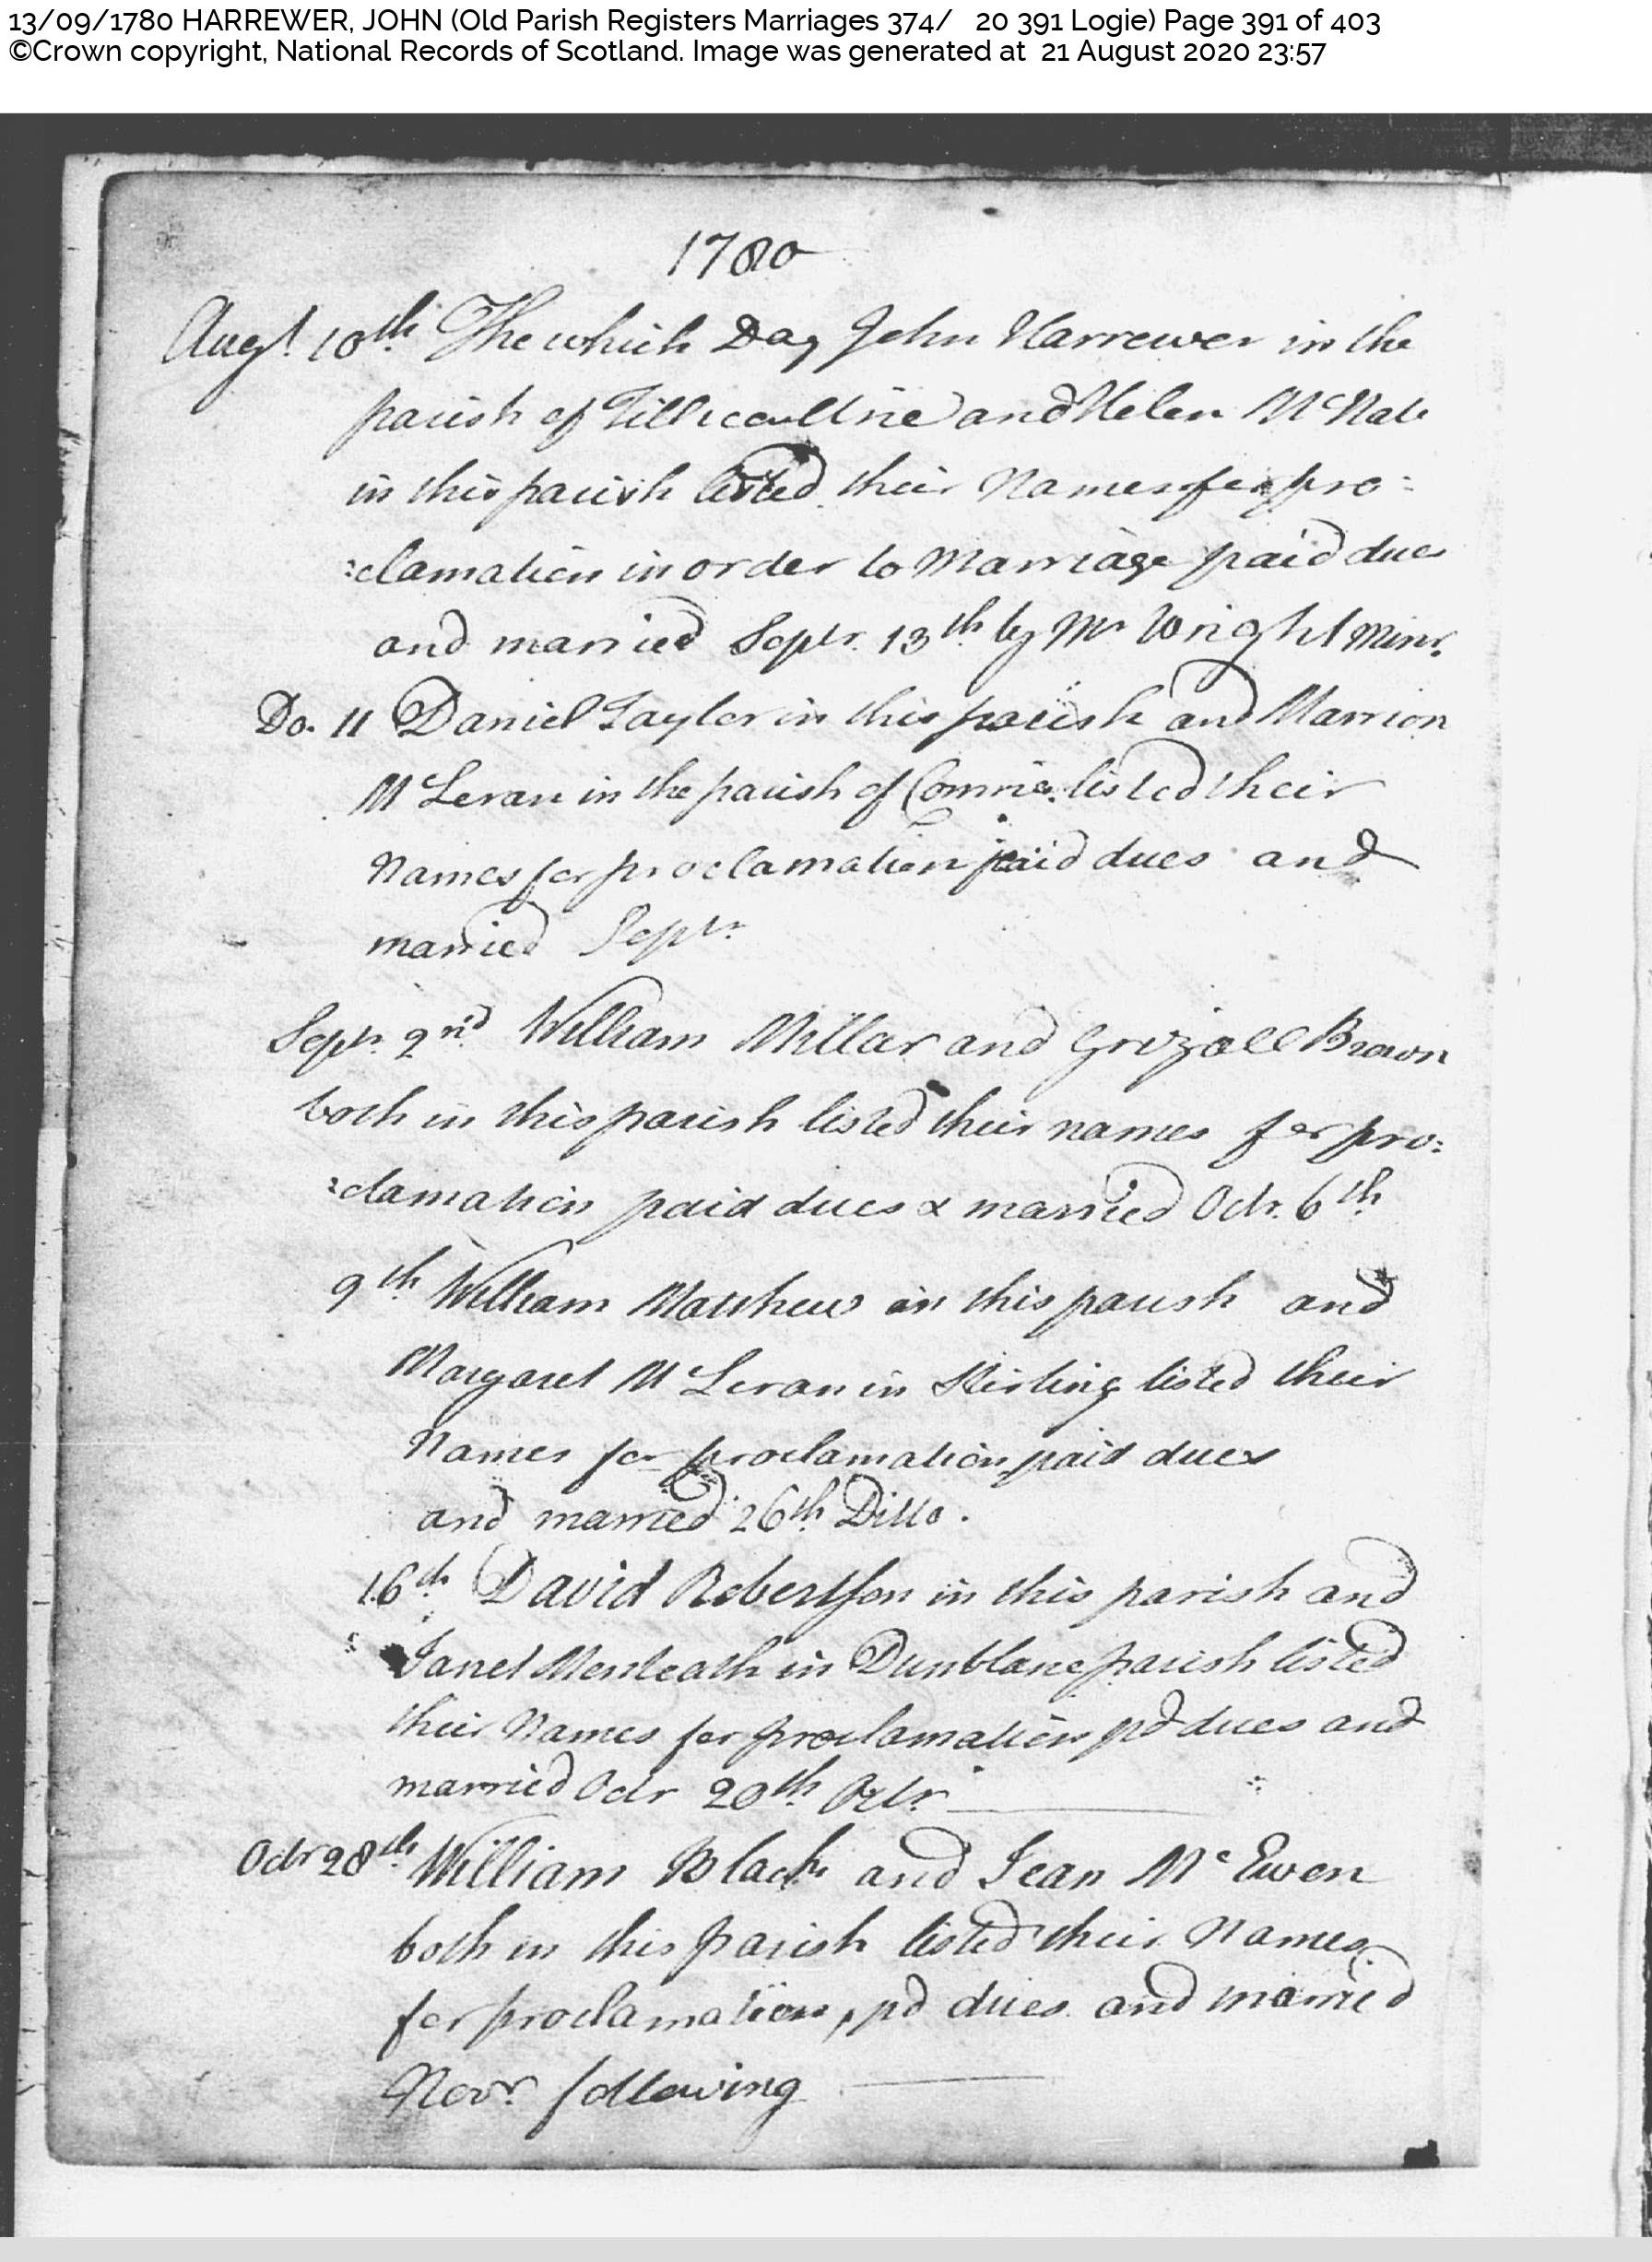 13/09/1780 HARREWER, JOHN (Old Parish Registers Marriages 374/ 20 391 Logie) Page 391 of 403
©Crown copyright, National Records of Scotland. Image was generated at 21 August 2020 23:57
1780
Augt. 10th. The which Day John Harrewer in the
parish of Tillicoultrie and Helen McNab
in this parish listed their Names for pro:
:clamation in order to Marriage paid dues
and married Septr. 13th. by Mr Wright Minr.
Do. 11 Daniel Taylor in this parish and Marrion
McLeran in the parish of Comrie listed their
Names for proclamation paid dues and
married Septr.
Septr. 2nd. William Millar and Grizall Brown
both in this parish listed their names for pro:
:clamation paid dues & married Octr. 6th.
9th. William Matthew in this parish and
Margaret McLeran in Stirling listed their
Names for proclamation paid dues
and married 26th. Ditto.
16th. David Robertson in this parish and
Janet Menteath in Dunblane parish listed
their Names for proclamation pd dues and
married Octr 20th. Octr.
Octr 28th. William Black and Jean Mc Ewen
both in this parish listed their Names
for proclamation, pd dues and married
Novr. following